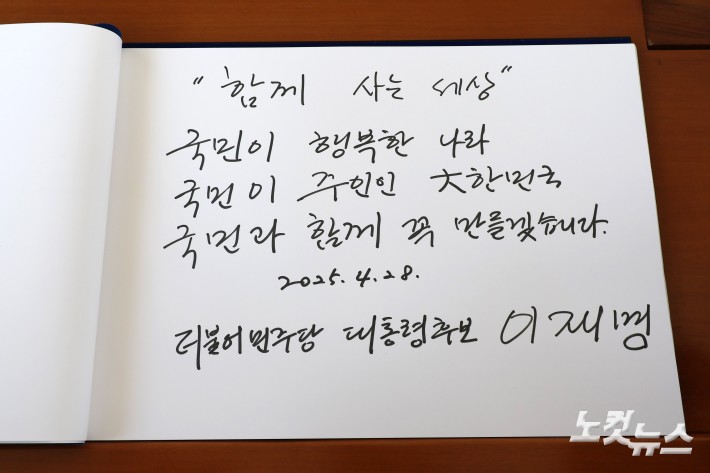 "함께 사는 세상"
국민이 행복한 나라
국민이 주인인 大한민국
국민과 함께 꼭 만들겠습니다.
2025.4.28.
더불어민주당 대통령후보 이재명
노컷뉴스